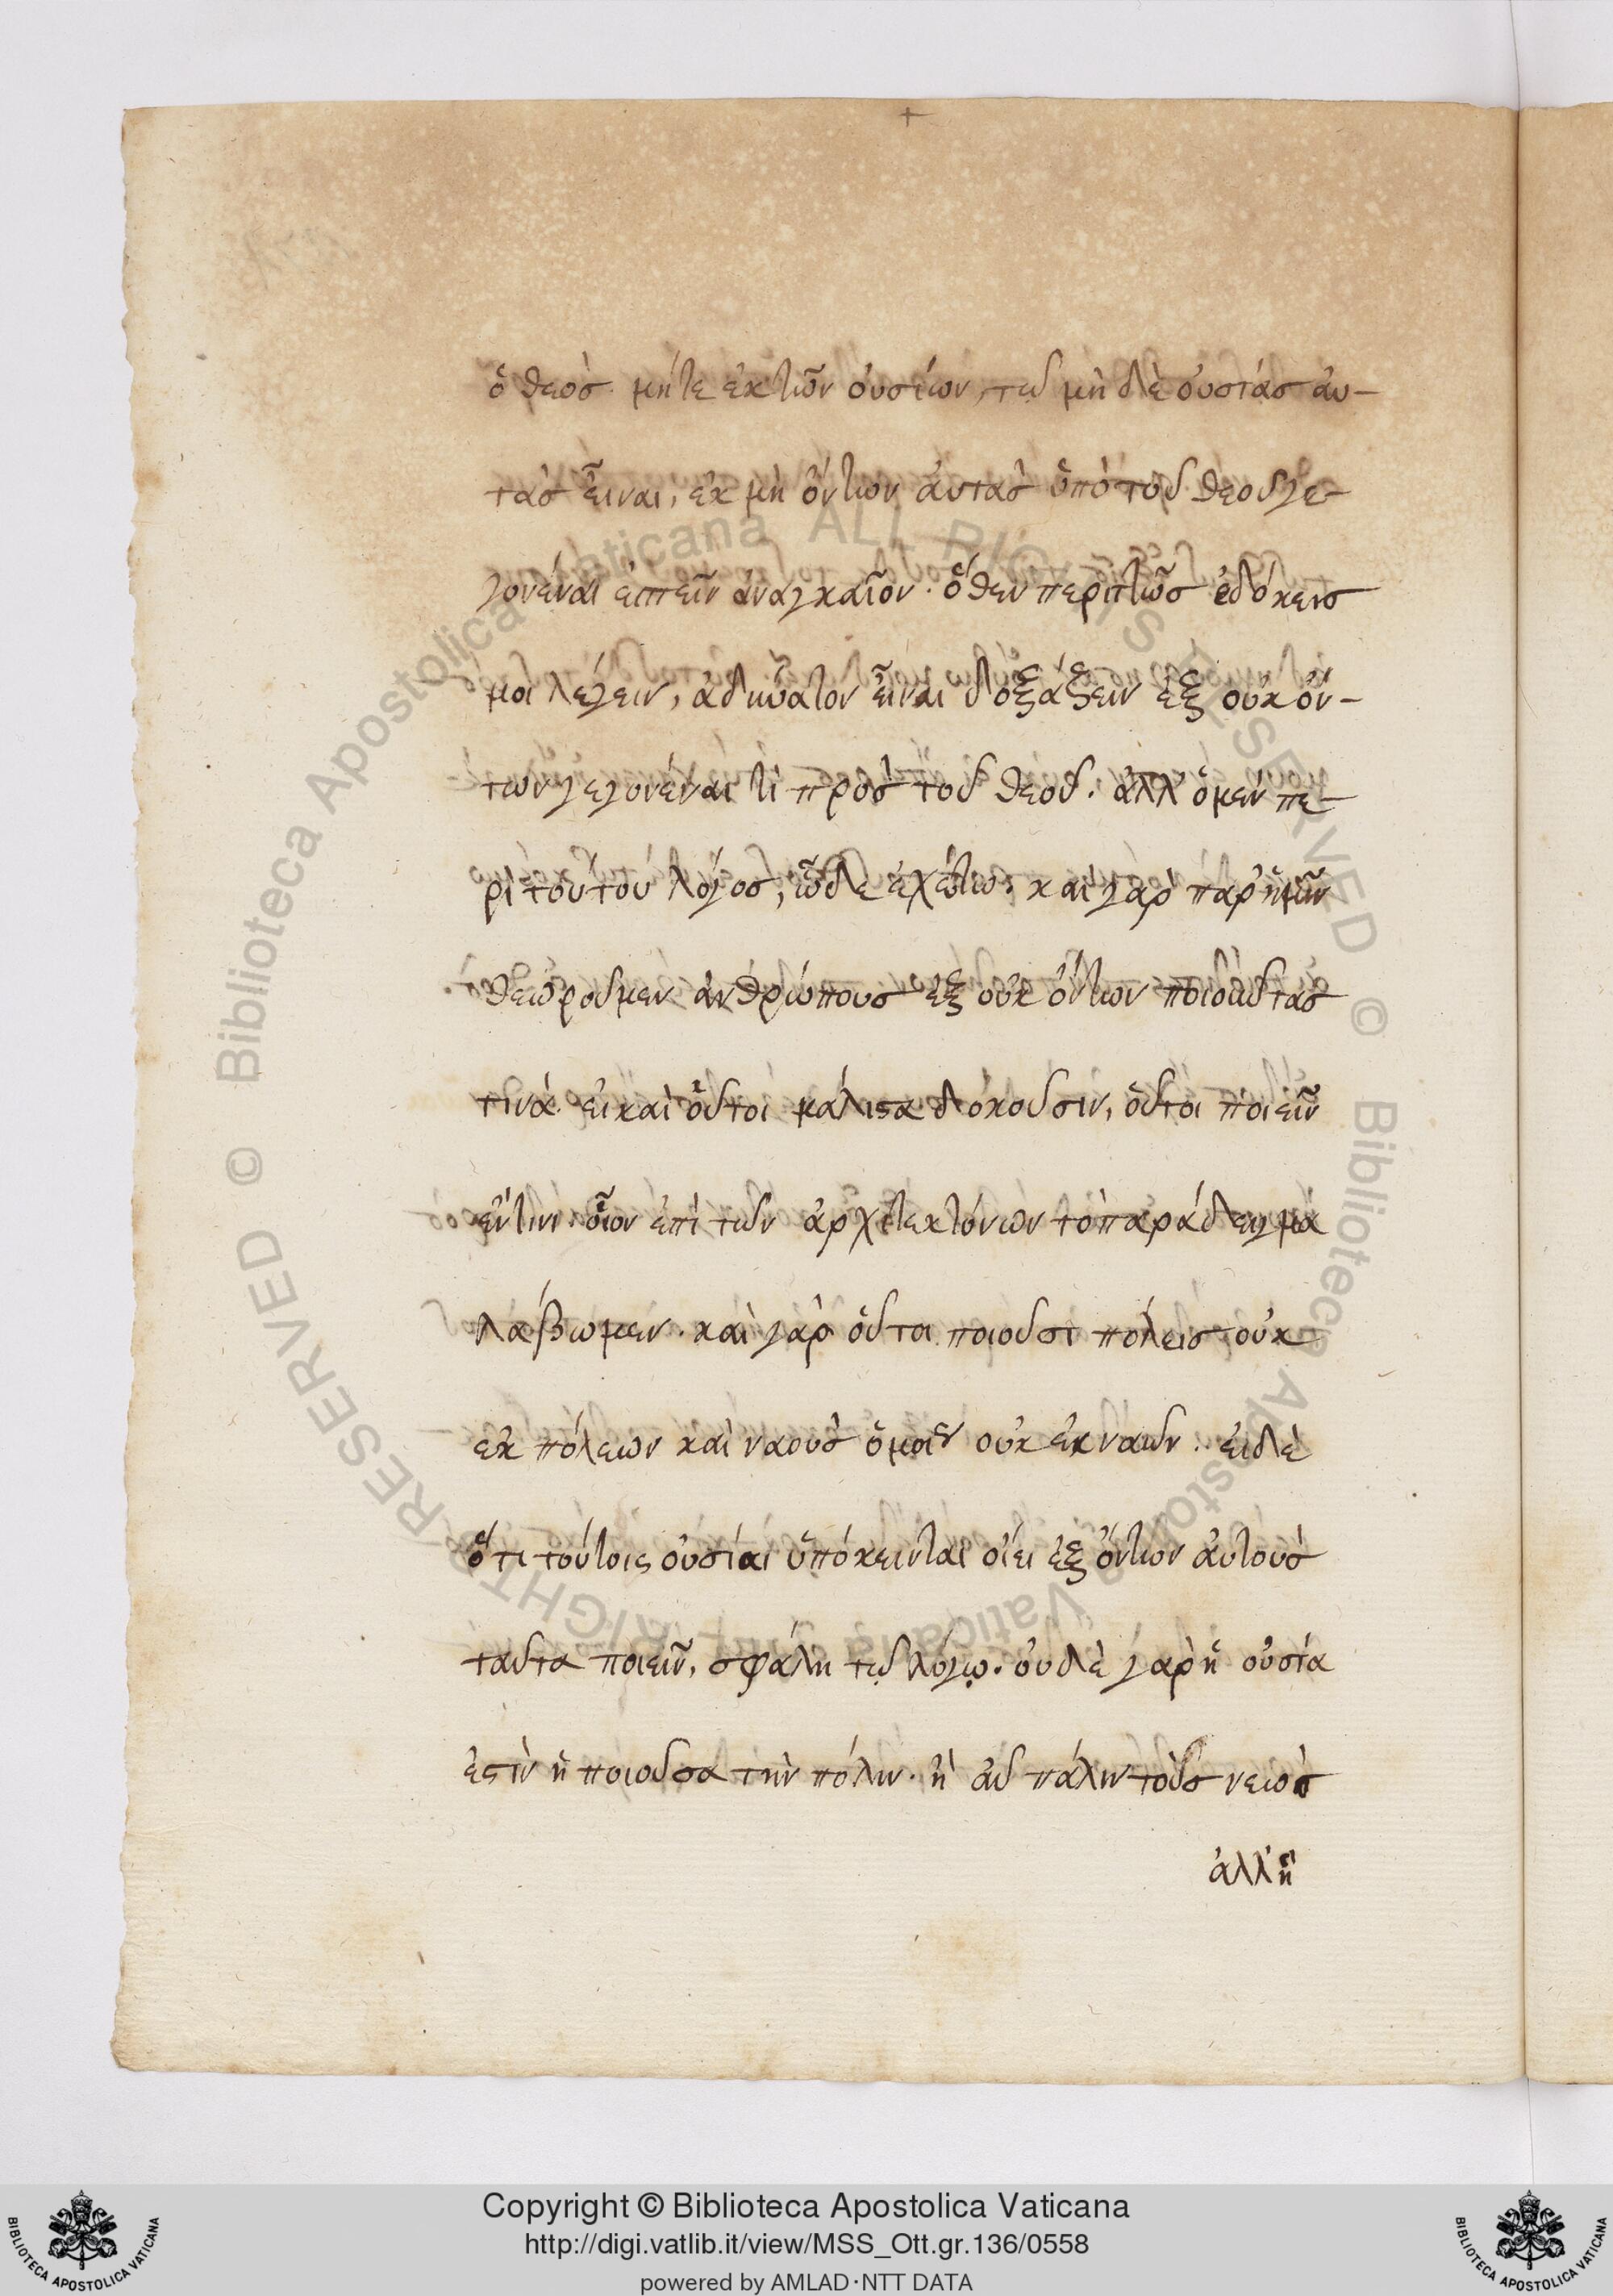 +
ὁ θεὸσ. μήτε ἐκ τῶν ὀυσιῶν, τῷ μὴ δὲ ὀυσίας ἀυ-
τὰσ ἔιναι, ἐκ μὴ ὄντων ἀυτὰσ ὑπὸ τοῦ θεοῦ γε-
γονέναι ἐιπεῖν ἀναγκαῖον. ὅθεν περιττῶσ ἐδόκεισ
μοι λέγειν, ἀδύνατον ἔιναι δοξάξειν ἐξ οὐκ ὄν-
των γεγονέναι τὶ πρὸσ τοῦ θεοῦ. ἀλλ' ὁ μὲν πε-
ρὶ τούτου λόγοσ, ὧδε ἐχέτω. καὶ γὰρ παρ' ἡμῖν
θεωροῦμεν ἀνθρώπουσ ἐξ οὐκ ὄντων ποιοῦντασ
τινά. εἰ καὶ ὅυτοι μάλιστα δοκοῦσιν, οὗτοι ποιεῖν
ἔντινι. οἷον ἐπὶ τῶν ἀρχιτεκτόνων τὸ παράδειγμα
λάβωμεν. καὶ γὰρ οὗτοι ποιοῦσι πόλεισ οὐκ
ἐκ πόλεων καὶ ναοὺσ ὁμοίως οὐκ ἐκ ναῶν. εἰ δὲ
ὅτι τούτοις ὀυσίαι ὑπόκεινται οἴει ἐξ ὄντων ἀυτοὺσ
ταῦτα ποιεῖν, σφάλη τῷ λόγῳ. ὀυδὲ γὰρ ἡ οὐσία
ἐστὶν ἡ ποιοῦσα τὴν πόλιν. ἢ αὖ πάλιν τοὺσ νεὼσ
ἀλλ' ἡ
Copyright © Biblioteca Apostolica Vaticana
http://digi.vatlib.it/view/MSS_Ott.gr.136/0558
powered by AMLAD·NTT DATA
BIBLIOTECA APOSTOLICA VATICANA
BIBLIOTECA APOSTOLICA VATICANA
© Biblioteca Apostolica Vaticana ALL RIGHTS RESERVED © Biblioteca Apostolica Vaticana ALL RIGHTS RESERVED